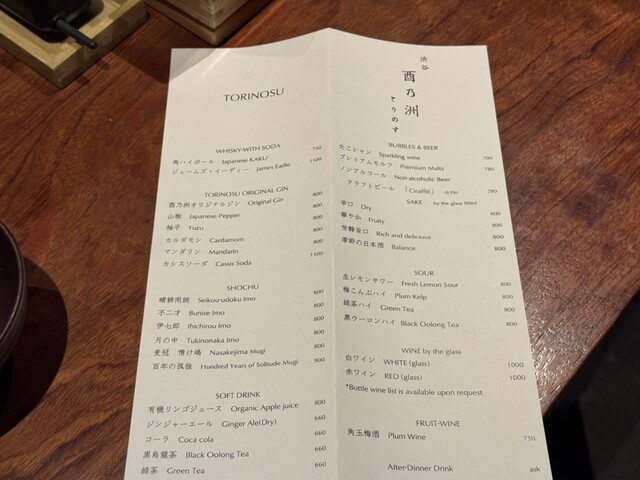 TORINOSU
WHISKY-WITH SODA
角ハイボール Japanese KAKU 750
ジェームズ・イーディー James Eadie 1100
TORINOSU ORIGINAL GIN
酉乃洲オリジナルジン Original Gin 800
山椒 Japanese Pepper 800
柚子 Yuzu 800
カルダモン Cardamom 800
マンダリン Mandarin 800
カシスソーダ Cassis Soda 1100
SHOCHU
晴耕雨読 Seikou-udoku Imo 800
不二才 Bunise Imo 800
伊七郎 Ihichirou Imo 800
月の中 Tukinonaka Imo 800
麦冠 情け嶋 Nasakejima Mugi 800
百年の孤独 Hundred Years of Solitude Mugi 900
SOFT DRINK
有機リンゴジュース Organic Apple juice 800
ジンジャーエール Ginger Ale(Dry) 660
コーラ Coca cola 660
黒烏龍茶 Black Oolong Tea 660
緑茶 Green Tea 660
渋谷
酉乃洲
とりのす
BUBBLES & BEER
たこシャン Sparkling wine 700
プレミアムモルツ Premium Malts 780
ノンアルコール Non-alcoholic Beer
クラフトビール 「Giraffe」 780
SAKE by the glass 90ml
辛口 Dry 800
華やか Fruity 800
芳醇旨口 Rich and delicious 800
季節の日本酒 Balance 800
SOUR
生レモンサワー Fresh Lemon Sour 800
梅こんぶハイ Plum Kelp 800
緑茶ハイ Green Tea 800
黒ウーロンハイ Black Oolong Tea 800
WINE by the glass
白ワイン WHITE (glass) 1000
赤ワイン RED (glass) 1000
*Bottle wine list is available upon request
FRUIT-WINE
角玉梅酒 Plum Wine 750
After-Dinner Drink ask